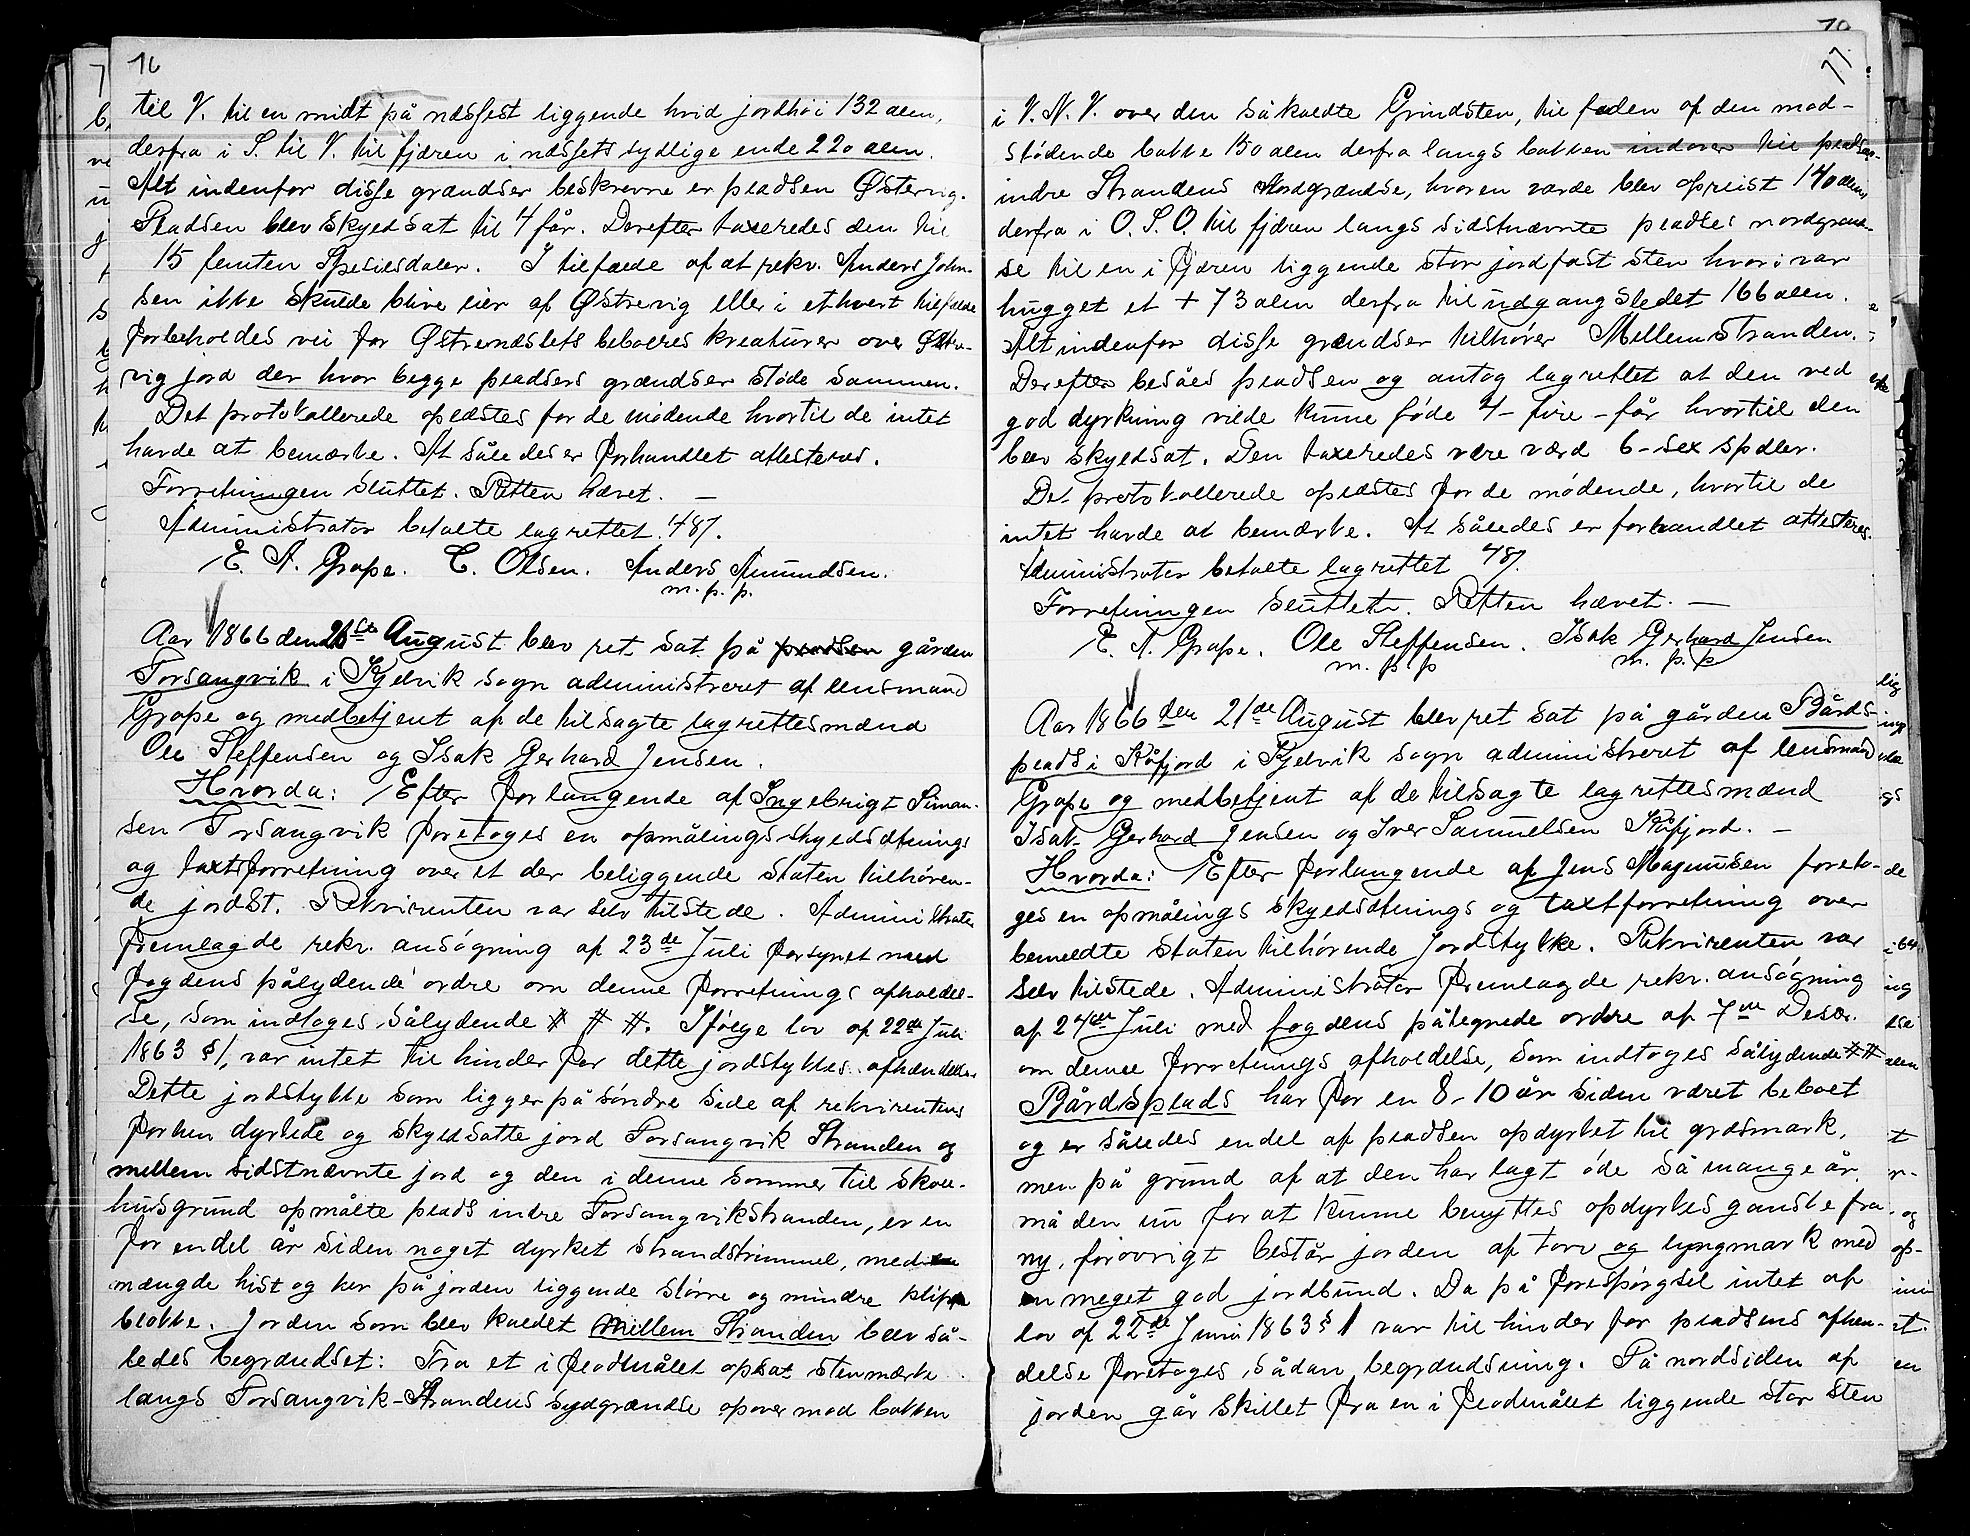 16
til V. til en midt på næsset liggende hvid jordhøi 132 alen,
derfra i S. til V. til fjæren i næssets sydlige ende 220 alen.
Alt indenfor disse grændser beskrevne er pladsen Østervig.
Pladsen blev skyldsat til 4 får. Derefter taxeredes den til
15 femten Spesiesdaler. I tilfælde af at rekv. Anders John-
sen ikke skulde blive eier af Østrevig eller i ethvert tilfælde
forbeholdes vei for Østrenæssets beboeres kreaturer over Østre-
vig jord der hvor begge pladsers grændser støde sammen.
Det protokollerede oplæstes for de mødende hvortil de intet
havde at bemærke. At således er forhandlet attesteres.
Forretningen sluttet. Retten hævet. —
Administrator betalte lagrettet 48/.
E. A. Grape. C. Olsen. Anders Amundsen.
m. p. p.
Aar 1866 den 21de August blev ret sat på pladsen gården
Torsangvik i Kjelvik sogn administreret af lensmand
Grape og medbetjent af de tilsagte lagrettesmænd
Ole Steffensen og Isak Gerhard Jensen.
Hvorda: Efter forlangende af Ingebrigt Siman-
sen Torsangvik foretoges en opmålings skyldsætnings
og taxtforretning over et der beliggende Staten tilhøren-
de jordst. Rekvirenten var selv tilstede. Administrator
fremlagde rekv. ansøgning af 23de Juli forsynet med
fogdens pålydende ordre om denne forretnings afholdel-
se, som indtoges sålydende # # #. Ifølge lov af 22de Juli
1863 § 1, var intet til hinder for dette jordstykkes afhændelse.
Dette jordstykke som ligger på søndre side af rekvirentens
forhen dyrkede og skyldsatte jord Torsangvik Stranden og
mellem sidstnævnte jord og den i denne sommer til skole-
husgrund opmålte plads indre Torsangvikstranden, er en
for endel år siden noget dyrket strandstrimmel, med en
mængde hist og her på jorden liggende større og mindre klippe
blokke. Jorden som blev kaldet Mellem Stranden blev så-
ledes begrændset: Fra et i flodmålet opsat stenmærke
langs Torsangvik-Strandens sydgrændse opover mod bakken
10
11
i V. N. V. over den såkaldte Grindsten, til foden af den mod-
stødende bakke 150 alen derfra langs bakken indover til pladsen
indre Strandens Nordgrændse, hvor en varde blev opreist 140 alen,
derfra i O. S. O. til fjæren langs sidstnævnte pladses nordgrænd-
se til en i fjæren liggende stor jordfast sten hvori var
hugget et + 73 alen derfra til udgangsstedet 166 alen.
Alt indenfor disse grændser tilhører Mellemstranden.
Derefter besåes pladsen og antog lagrettet at den ved
god dyrkning vilde kunne føde 4 - fire - får hvortil den
blev skyldsat. Den taxeredes være værd 6 - sex spdlr.
Det protokollerede oplæstes for de mødende, hvortil de
intet havde at bemærke. At således er forhandlet attesteres.
Administrator betalte lagrettet 48/.
Forretningen sluttet. Retten hævet. —
E. A. Grape. Ole Steffensen. Isak Gerhard Jensen
m. p. p m. p. p
Aar 1866 den 21de August blev ret sat på gården Bårds-
plads i Kåfjord i Kjelvik sogn administreret af lensmand
Grape og medbetjent af de tilsagte lagrettesmænd
Isak Gerhard Jensen og Iver Samuelsen Kåfjord. —
Hvorda: Efter forlangende af Jens Magnusen foreto-
ges en opmålings skyldsætnings og taxtforretning over
bemeldte staten tilhørende Jordstykke. Rekvirenten var
selv tilstede. Administrator fremlagde rekv. ansøgning
af 24de Juli med fogdens påtegnede ordre af 7de Desbr.
om denne forretnings afholdelse, som indtoges sålydende # #
Bårdsplads har for en 8-10 år siden været beboet
og er således endel af pladsen opdyrket til græsmark,
men på grund af at den har lagt øde så mange år,
må den nu for at kunne benyttes opdyrkes ganske fra
ny, forøvrigt består jorden af torv og lyngmark med
en meget god jordbund. Da på forespørgsel intet af
lov af 22de Juni 1863 § 1 var til hinder for pladsens afhen-
delse foretoges sådan begrændsning. På nordsiden af
jorden går skillet fra en i flodmålet liggende stor sten